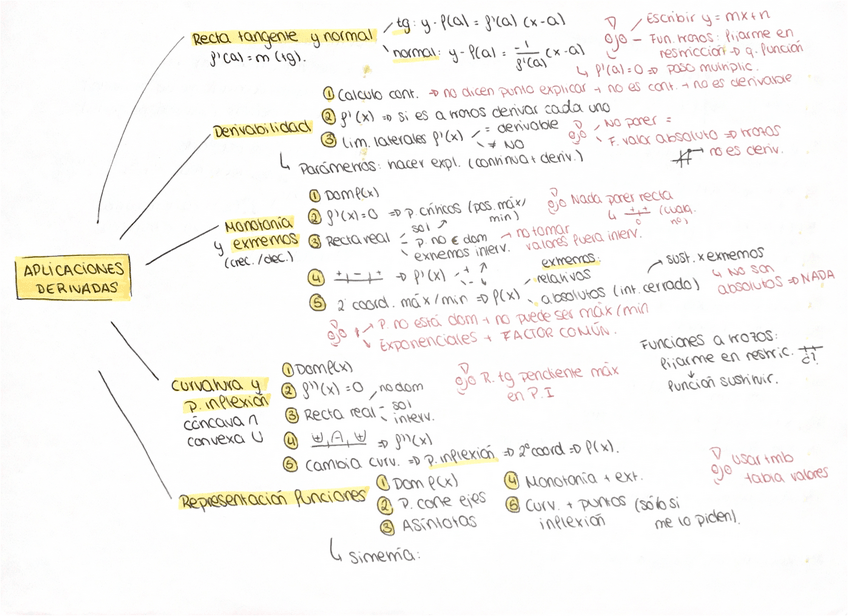 APLICACIONES
DERIVADAS
Recta tangente y normal
f'(a) = m (tg).
tg: y-f(a) = f'(a) (x-a)
normal: y-f(a) = -1/f'(a) (x-a)
ojo
Escribir y = mx+n
Fun. trozos: fijarme en
restricción ⇒ q. función
↳ f'(a)=0 ⇒ paso multiplic.
Derivabilidad
① Calculo cont. ⇒ no dicen punto explicar → no es cont. → no es derivable
② f'(x) ⇒ si es a trozos derivar cada uno
③ lim. laterales f'(x)
= derivable
≠ NO
ojo
No poner =
F. valor absoluto ⇒ trozos
no es deriv.
↳ Parámetros: hacer expl. (continua + deriv.)
Monotonía
y extremos
(crec./dec.)
① Dom f(x)
② f'(x)=0 ⇒ p. críticos (pos. máx/
min)
ojo Nada poner recta
③ Recta real
sol
p. no € dom
extremos interv.
no tomar
valores fuera interv.
④ +,-,+ ⇒ f'(x) - +
⑤ 2ª coord. máx/min ⇒ f(x)
extremos:
relativos
absolutos (int. cerrado)
sust. x extremos
↳ NO son
absolutos ⇒ NADA
ojo
P. no está dom → no puede ser máx/min
Exponenciales → FACTOR COMÚN.
Curvatura y
p. inflexión
cóncava ∩
convexa ∪
① Dom f(x)
② f''(x) = 0
③ Recta real
no dom
sol
interv.
④ ∪,∩,∪ ⇒ f''(x)
⑤ Cambia curv. ⇒ p. inflexión ⇒ 2º coord ⇒ f(x).
ojo R. tg pendiente máx
en P.I
Funciones a trozos:
fijarme en restric.
función sustituir.
Representación funciones
① Dom f(x)
② P. corte ejes
③ Asíntotas
④ Monotonía + ext.
⑤ Curv. + puntos (sólo si
inflexión me lo piden).
ojo usar tmb
tabla valores
↳ Simetría: